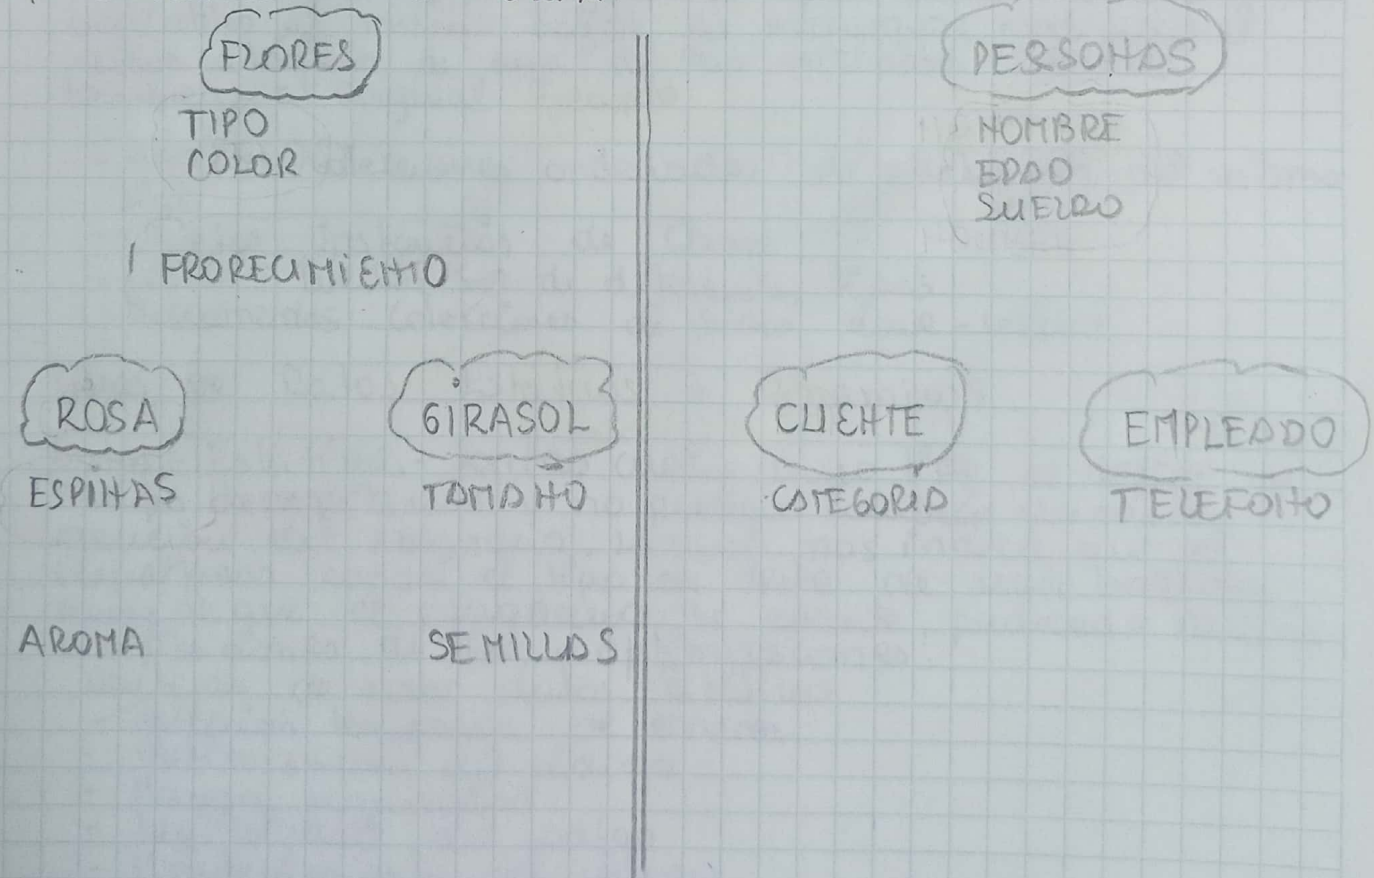 FLORES
TIPO
COLOR
FRORECIMIENTO
ROSA
ESPINAS
AROMA
GIRASOL
TAMAÑO
SEMILLAS
PERSONAS
NOMBRE
EDAD
SUELDO
CLIENTE
CATEGORIA
EMPLEADO
TELEFONO